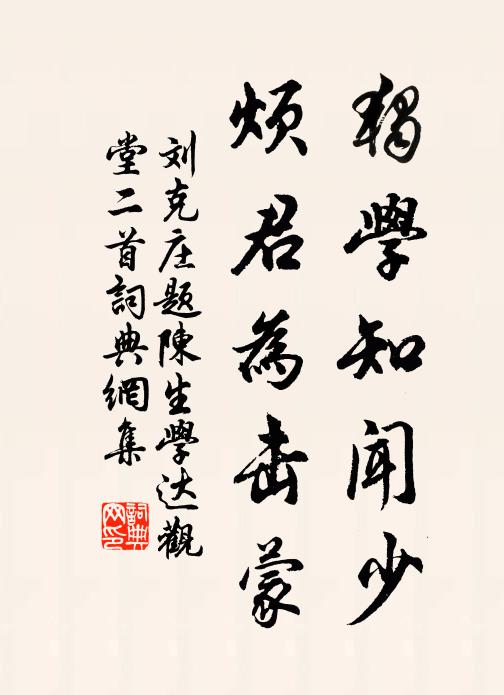 獨學知闻少
烦君為击蒙
刘克庄题陳生學达觀
堂二首詞典網集
詞典网印